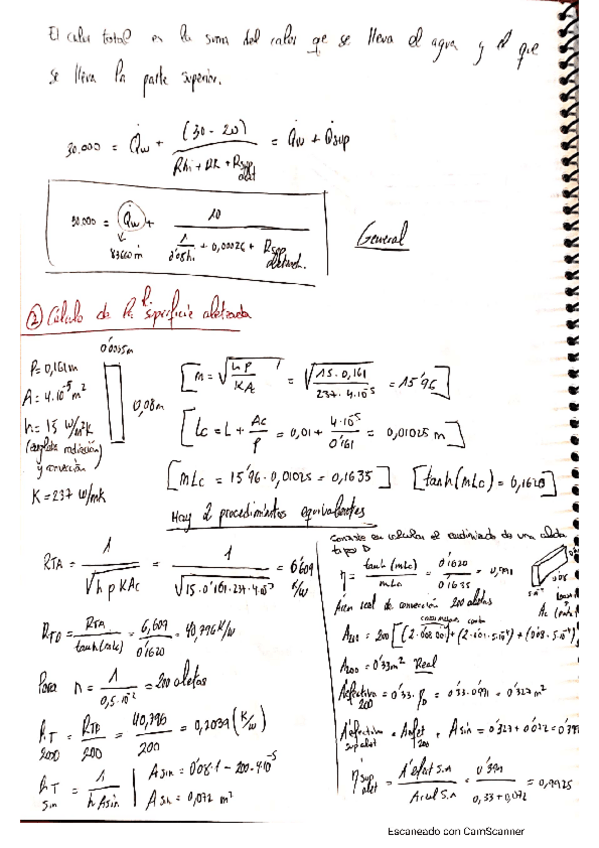 El calor total es la suma del calor qe se lleva el agua y el que
se lleva la parte superior.
30.000 = Q̇w + (30 - 20) / (Rhi + RK + Rsup alet) = Q̇w + Q̇sup
30.000 = Q̇w + 10 / (1/0'08hi + 0,00026 + Rsup aletead.)
83600 ṁ
General
② Cálculo de R superficie aleteada
P = 0,161m
A = 4.10⁻⁵ m²
h = 15 W/m²K
(engloba radiación
y convección)
K = 237 W/mK
0'0005m
0,08m
[m = √(hP/KAc) = √(15·0,161 / 237·4·10⁻⁵) = 15'96]
[Lc = L + Ac/P = 0,01 + 4·10⁻⁵/0'161 = 0,01025 m]
[mLc = 15'96 · 0,01025 = 0,1635] [tanh(mLc) = 0,1620]
Hay 2 procedimientos equivalentes
RTA = 1/√(h p KAc) = 1/√(15·0'161·237·4·10⁻⁵) = 6'609 K/W
RTD = RTA/tanh(mLc) = 6,609/0'1620 = 40,796 K/W
Para n = 1/0,5·10⁻² = 200 aletas
RT 200 = RTD/200 = 40,796/200 = 0,2039 (K/W)
RT sin = 1/(h Asin)
A sin = 0'08·1 - 200·4·10⁻⁵
A sin = 0,072 m²
Consiste en calcular el rendimiento de una aleta
tipo D
η = tanh(mLc)/mLc = 0'1620/0'1635 = 0,991
Area real de convección 200 aletas
A200 = 200[(2·0'08·0'01) + (2·0'01·5·10⁻⁴) + (0'08·5·10⁻⁴)]
A200 = 0'33m² Real
Aefectiva 200 = 0'33·ηD = 0'33·0'991 = 0'327 m²
A'efectiva sup alet = Aefect 200 + A sin = 0'327 + 0'072 = 0'399
η sup alet = A'efect s.A / A real s.A = 0'399 / (0,33 + 0,072) = 0,9925
Escaneado con CamScanner